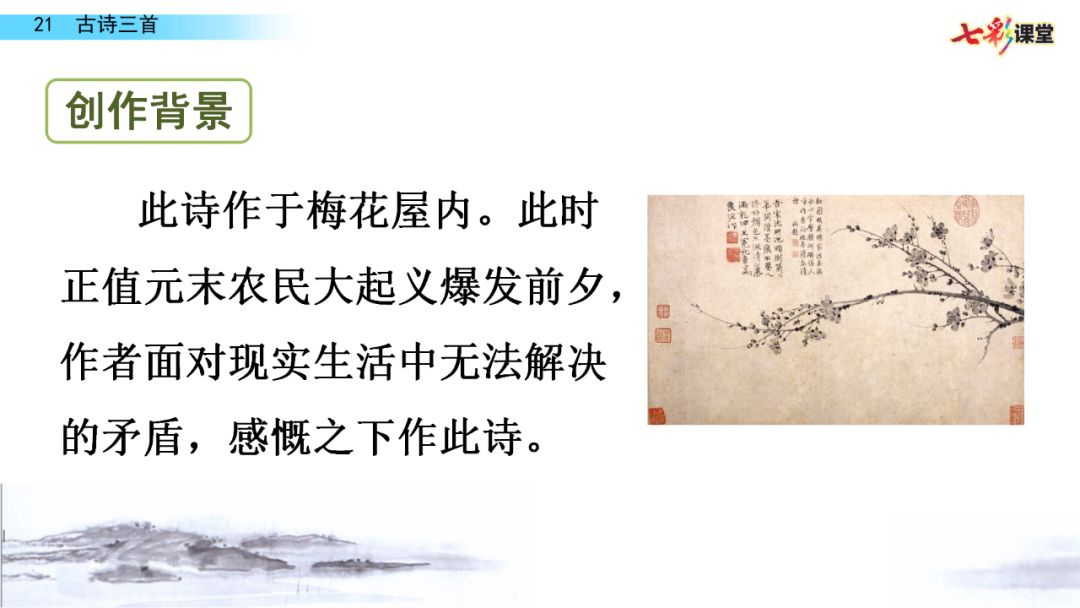 21 古诗三首
七彩课堂
创作背景
此诗作于梅花屋内。此时
正值元末农民大起义爆发前夕，
作者面对现实生活中无法解决
的矛盾，感慨之下作此诗。